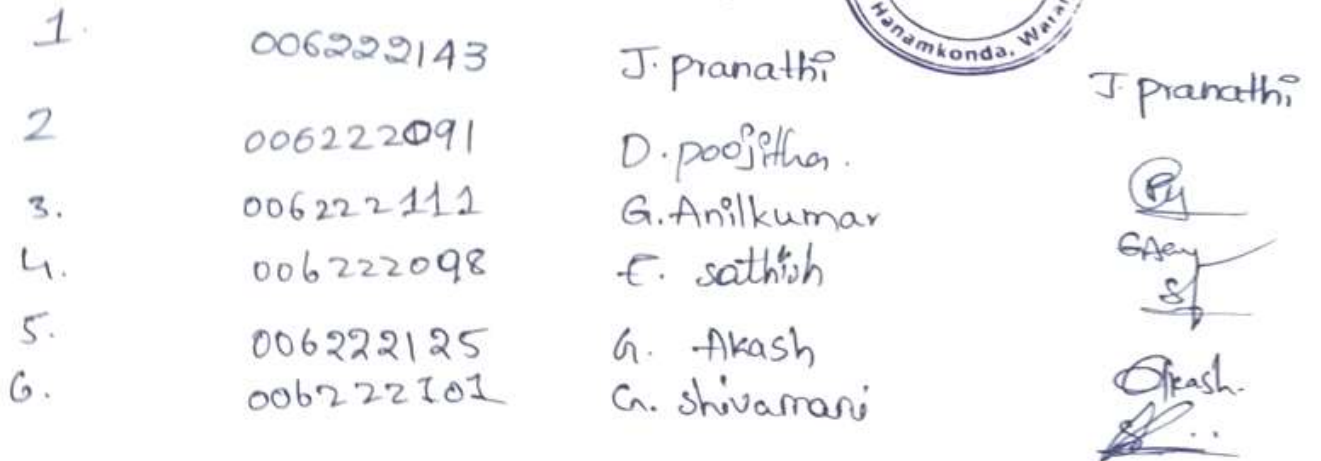 Hanamkonda, Wara
1. 006222143 J. pranathi J pranathi
2 006222091 D. poojitha.
3. 006222111 G. Anilkumar
4. 006222098 E. sathish
5. 006222125 G. Akash Akash.
6. 006222101 G. shivamani